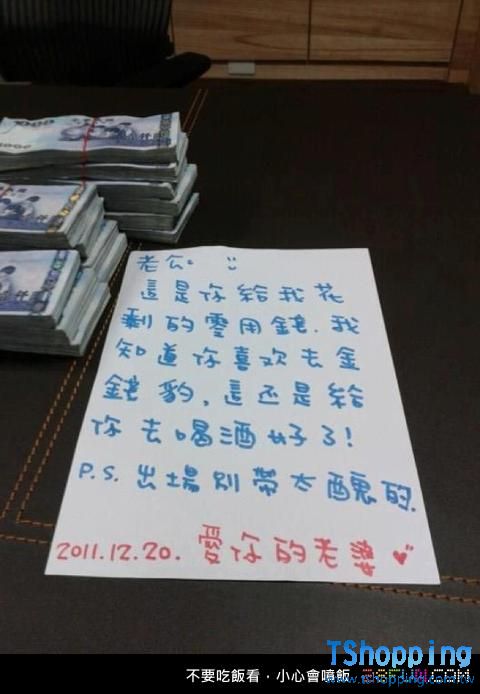 1000
1000
老公 :)
這是你給我花
剩的零用錢.我
知道你喜欢去金
錢豹,這还是給
你去喝酒好了!
P.S. 出場别帶太醜的.
2011.12.20. 愛你的老婆
TShopping
www.tshopping.com.tw
不要吃飯看，小心會噴飯